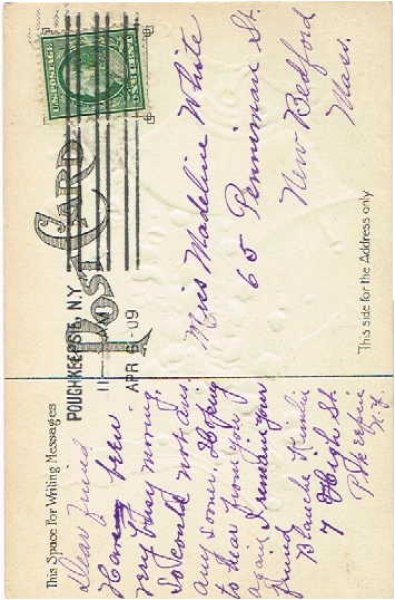 This Space For Writing Messages
Dear friend
Have been
very busy moving,
so could not ans.
any sooner. Hoping
to hear from you
again I remain your
friend
Blanche
7 High St.
Pkeepsie
N.Y.
POST CARD
U.S. POSTAGE
POUGHKEEPSIE, N.Y.
11
APR 09
Miss Madeline White
65 Penniman St.
New Bedford
Mass.
This side for the Address only